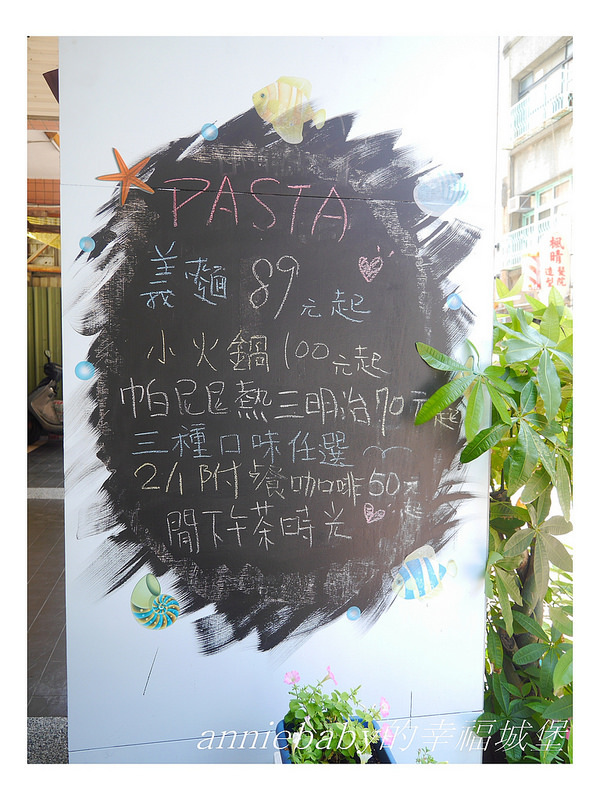 PASTA
義麵 89元起
小火鍋100元起
帕尼尼熱三明治70元起
三種口味任選
2/1附餐咖啡50元起
閒下午茶時光
楓晴
造型髮院
anniebaby的幸福城堡